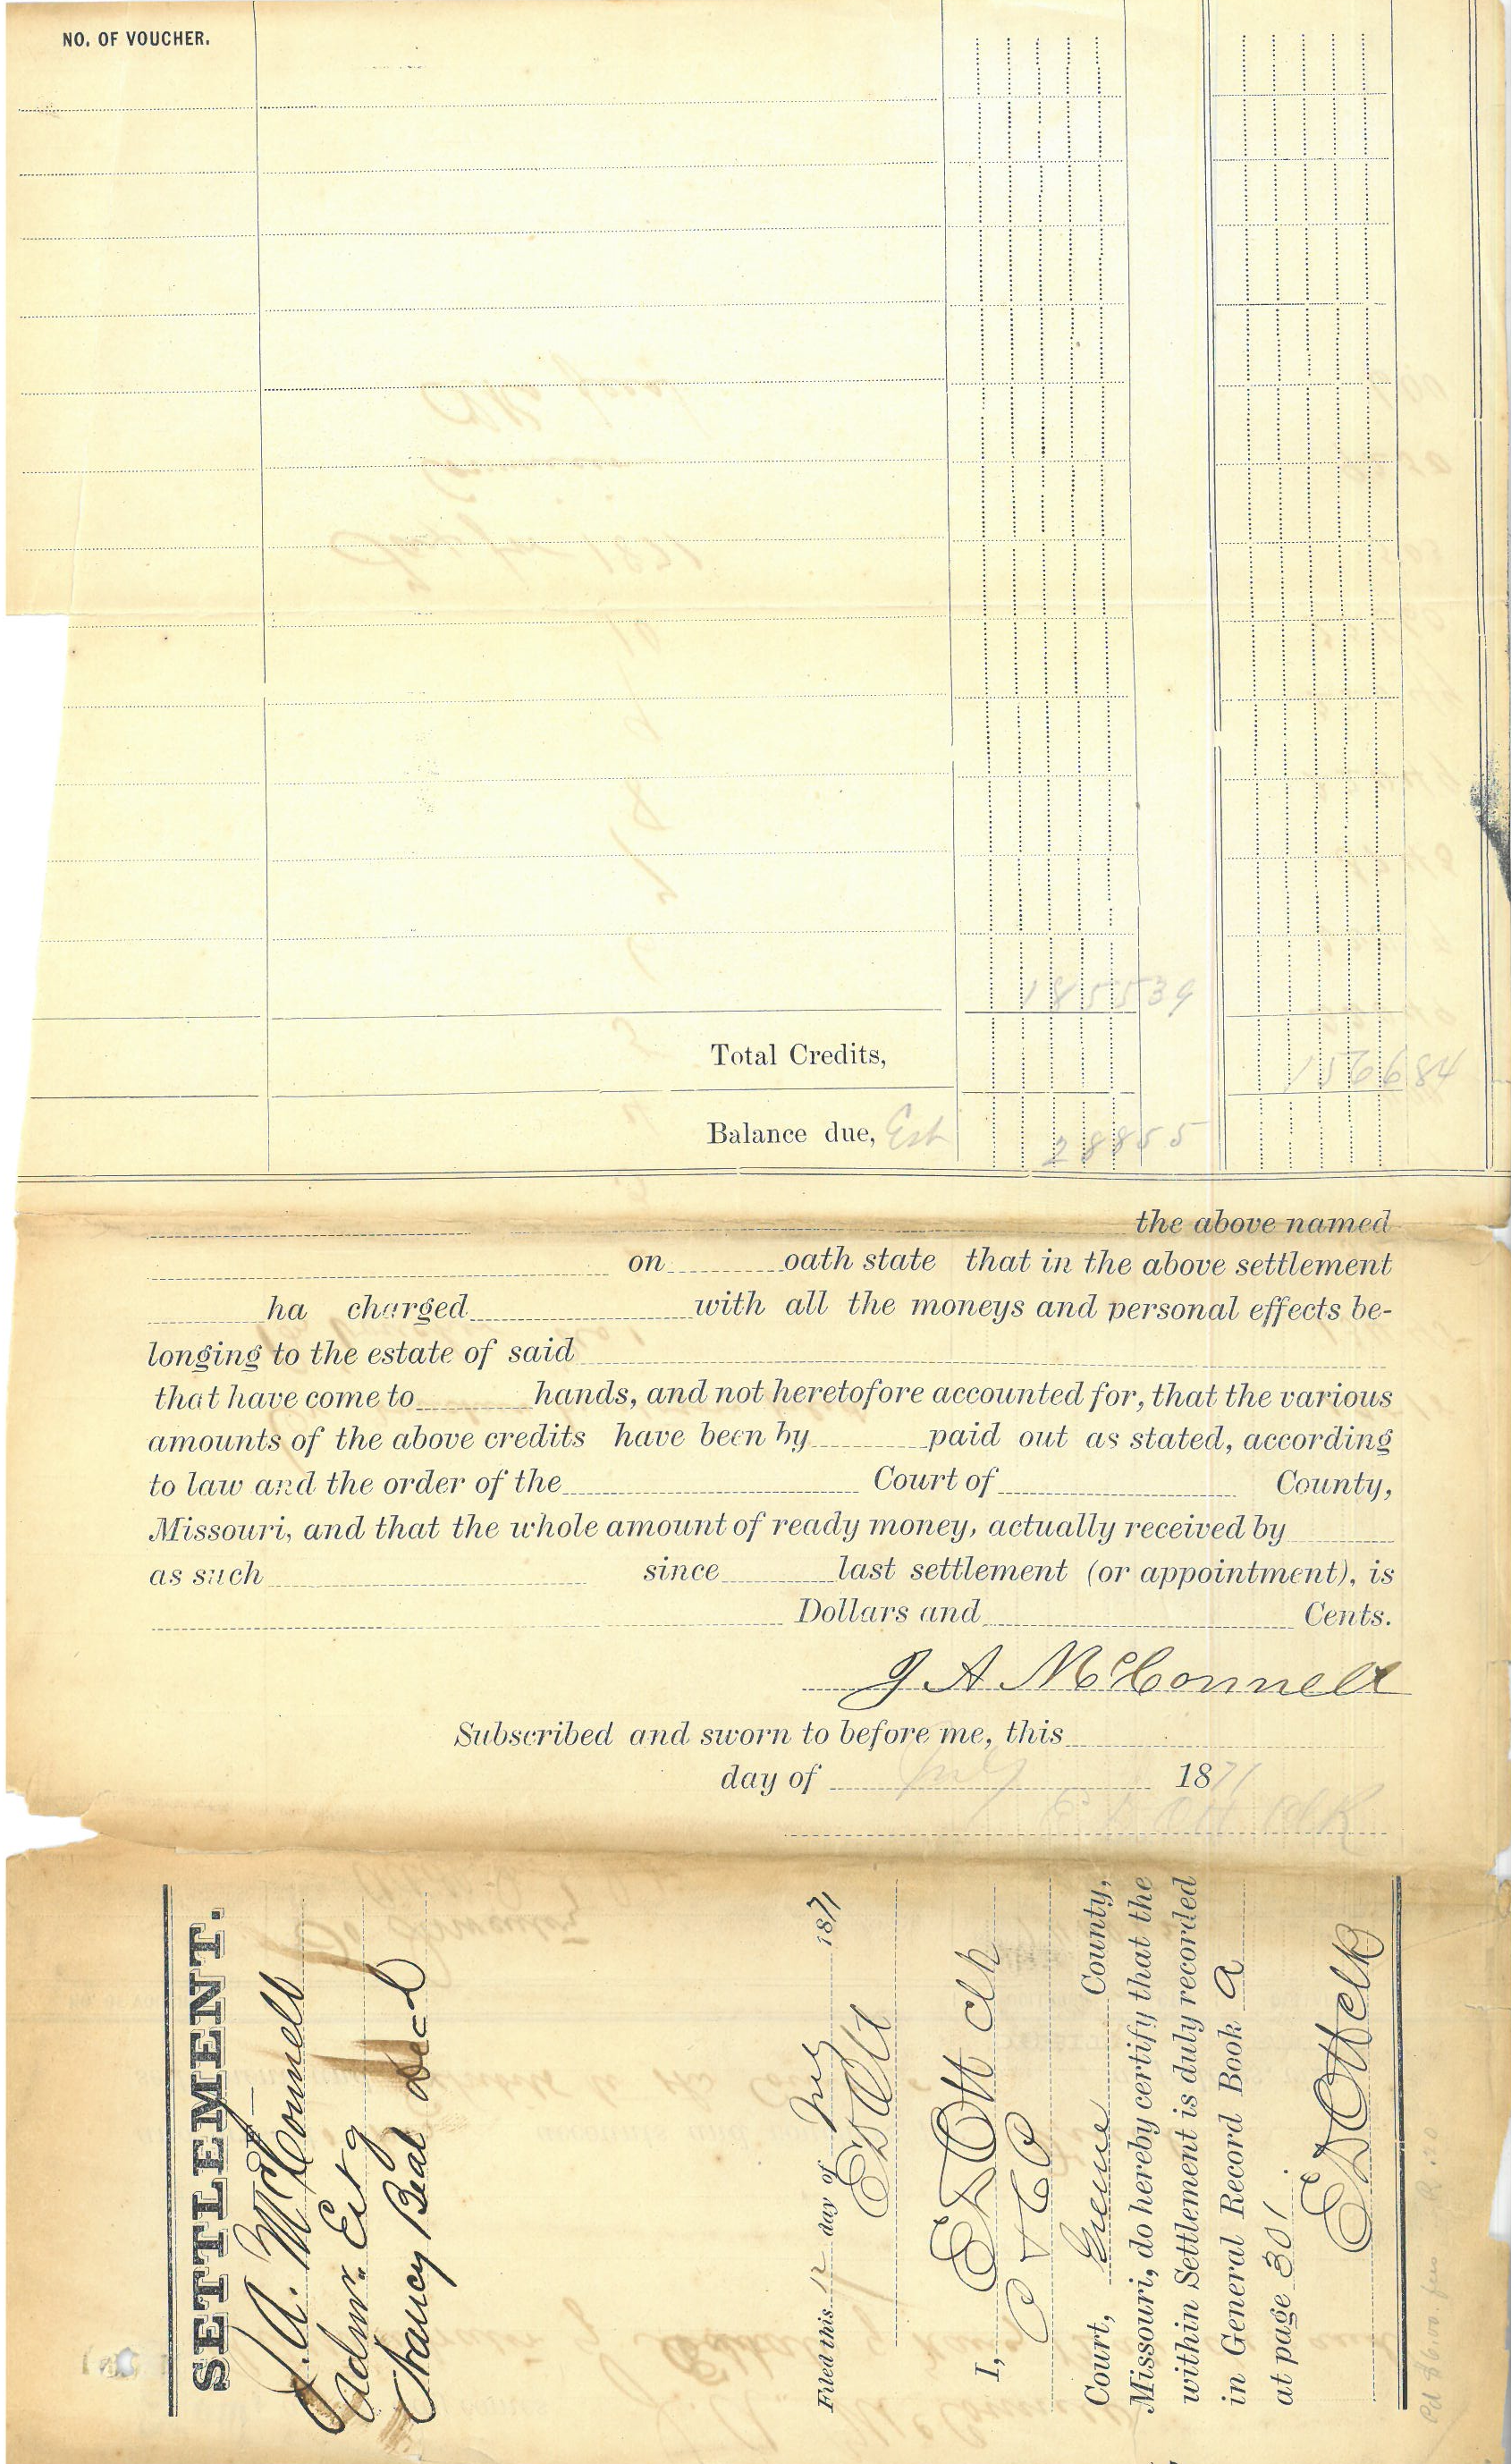 NO. OF VOUCHER.
1855 39
Total Credits, 1566 84
Balance due, Est 288 55
the above named
on oath state that in the above settlement
ha charged with all the moneys and personal effects be-
longing to the estate of said
that have come to hands, and not heretofore accounted for, that the various
amounts of the above credits have been by paid out as stated, according
to law and the order of the Court of County,
Missouri, and that the whole amount of ready money, actually received by
as such since last settlement (or appointment), is
Dollars and Cents.
J A McConnell
Subscribed and sworn to before me, this
day of July 1871
E D Ott Clk
SETTLEMENT.
J. A. McConnell
Admr. Est of
Chancy Beal Decd
Filed this 12 day of July 1871
E D Ott
I, E D Ott Clk
Court, Greene County,
Missouri, do hereby certify that the
within Settlement is duly recorded
in General Record Book A
at page 301.
E D Ott Clk